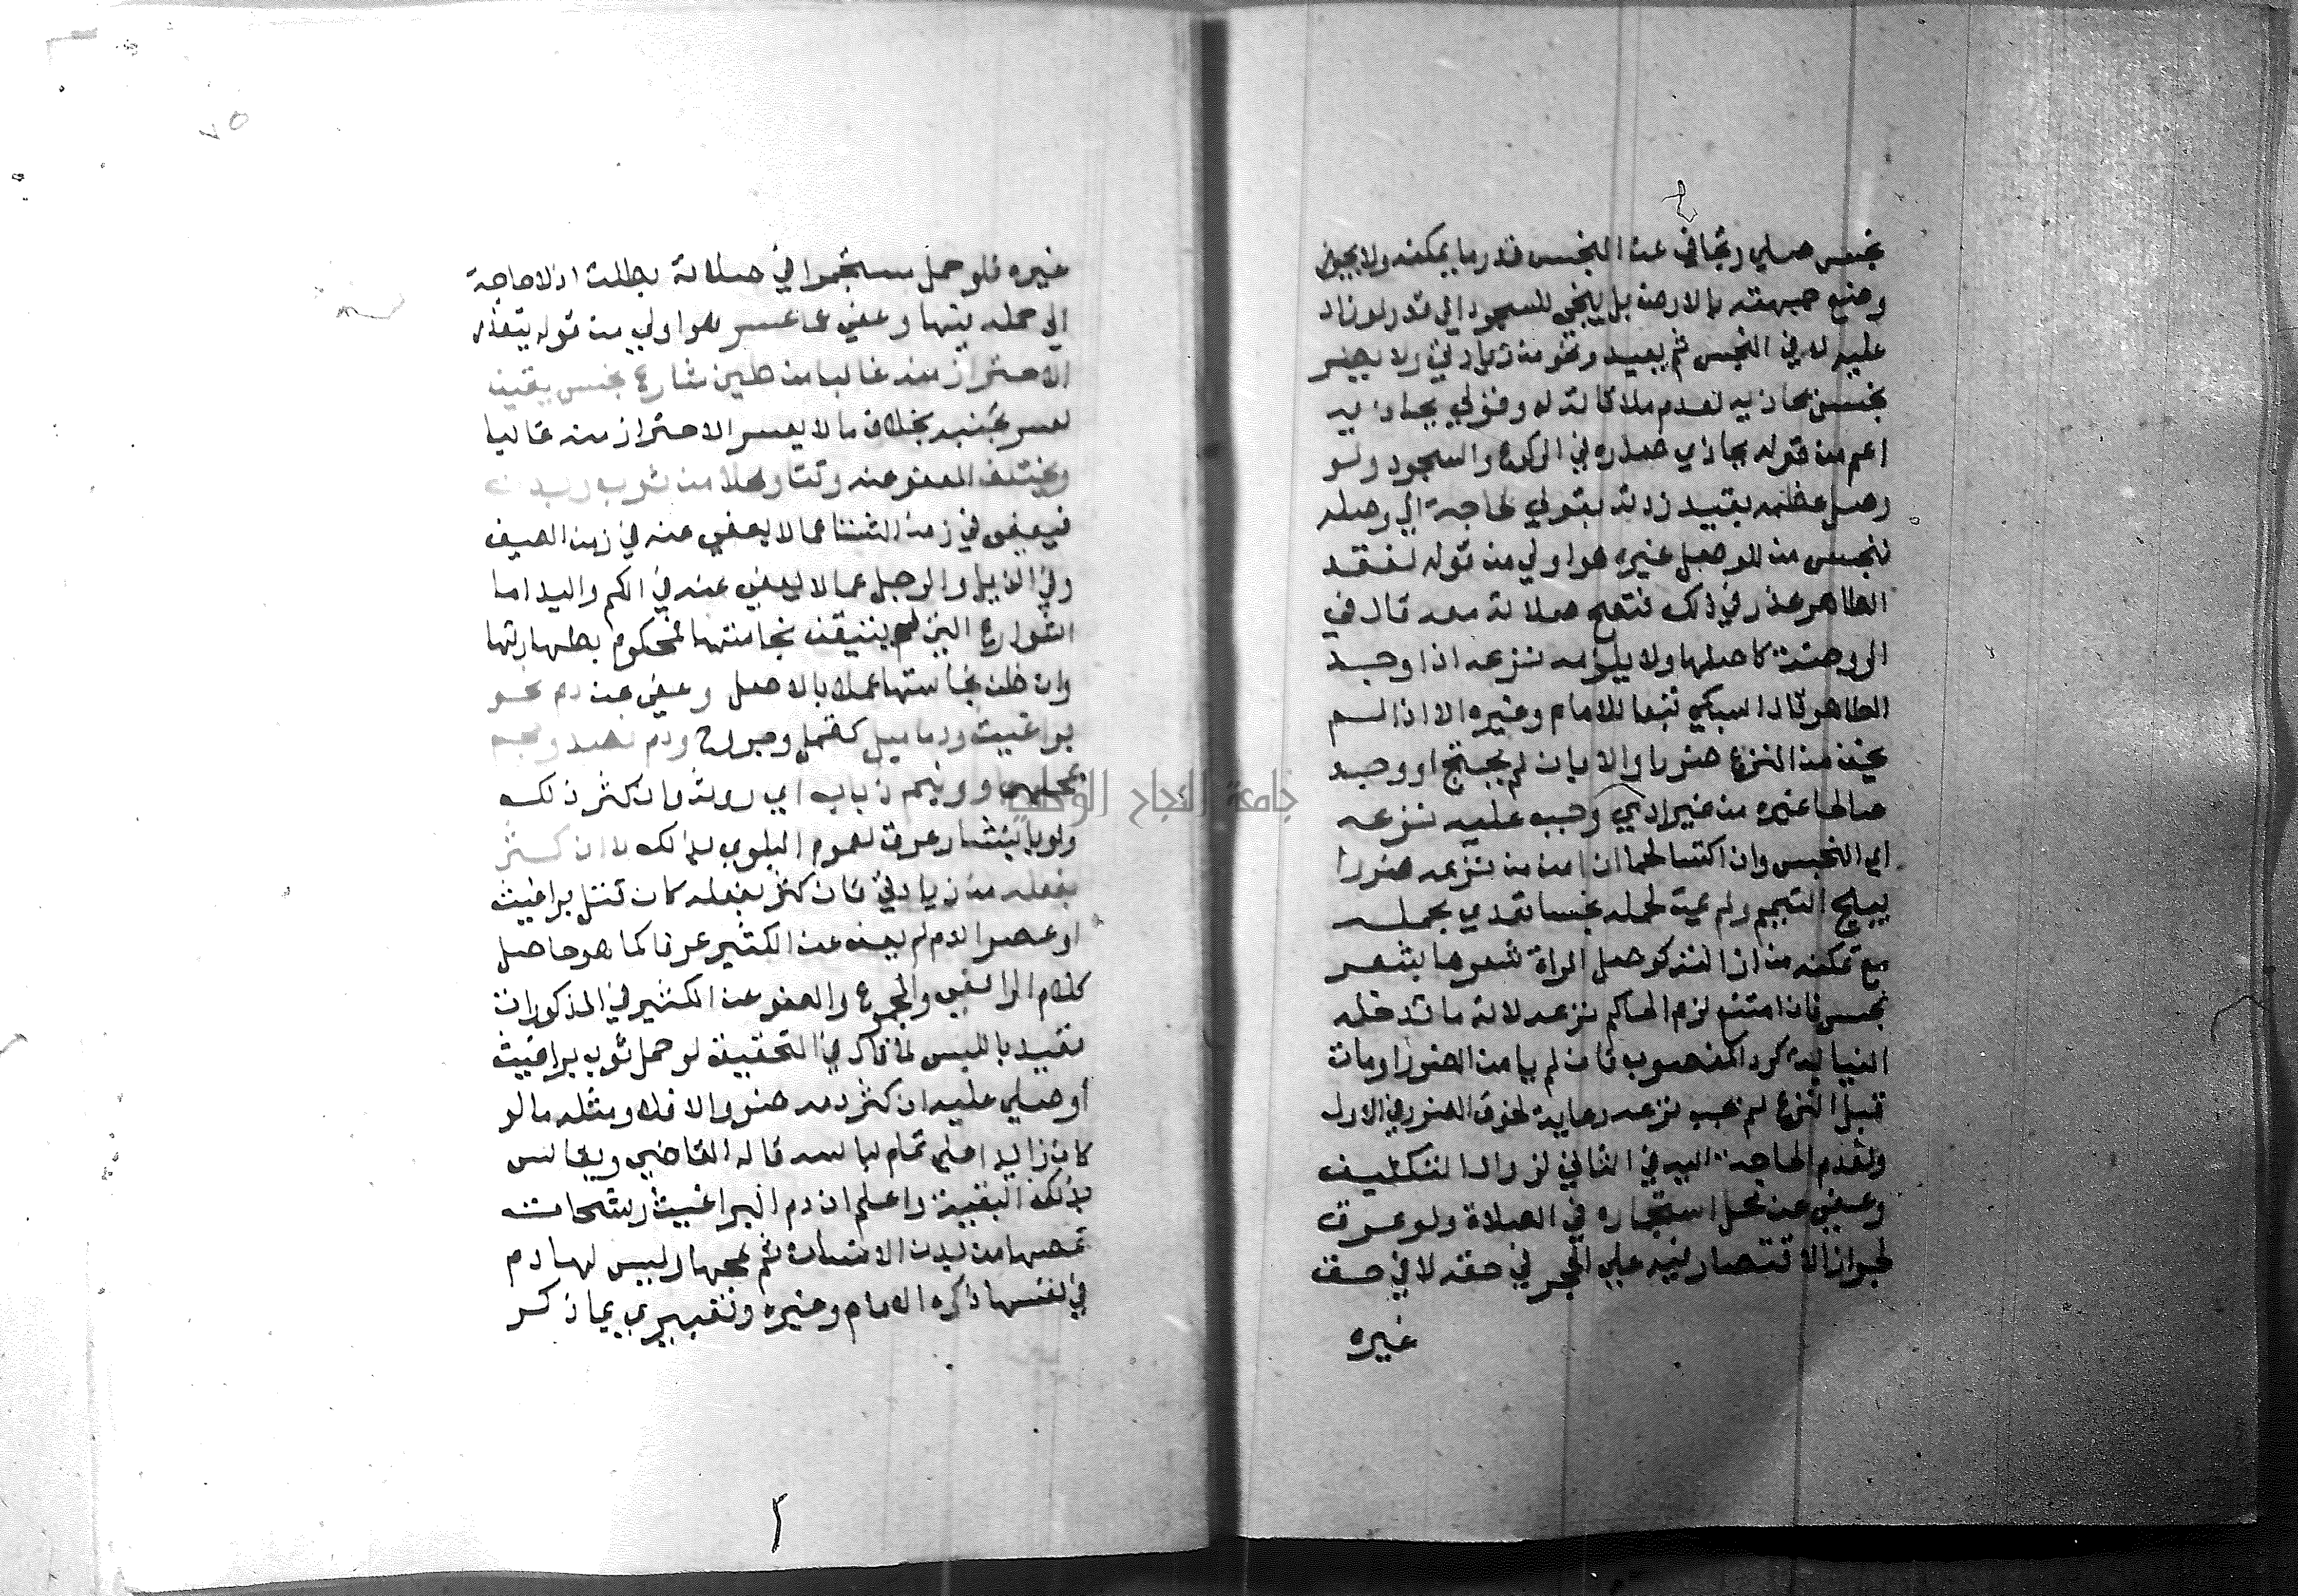 بنجس صلي وتجافي عن النجس قدر ما يمكنه ولا يجوز
وضع جبهته بالارض بل ينحني للسجود الي قدر لو زاد
عليه لاقي النجس ثم يعيد وهو من زيادتي ولا يضر
نجس يحاذيه لعدم ملاقاته له وقولي يحاذيه
اعم من قوله يحاذي صدره في الركوع والسجود ولو
وصل عظمه بقيد زدته بقولي لحاجة الي وصله
بنجس من الوصل غيره هو اولي من قوله لفقد
الطاهر عذر في ذلك فتصح صلاته معه قال في
الروضة كاصلها ولا يلزمه نزعه اذا وجد
الطاهر قال السبكي تبعا للامام وغيره الا اذا لم
يخف من النزع ضررا والا بان لم يحتج او وجد
صالحا غيره من غير ادمي وجب عليه نزعه
اي النجس وان اكتسا لحما ان امن من نزعه ضررا
يبيح التيمم ولم يمت لحمله نجسا تعدي بحمله
مع تمكنه من ازالته كوصل المراة شعرها بشعر
نجس فان امتنع لزم الحاكم نزعه لانه مما تدخله
النيابة كرد المغصوب فان لم يامن الضرر او مات
قبل النزع لم يجب نزعه رعاية لخوف الضرر في الاول
ولعدم الحاجة اليه في الثاني لزوال التكليف
وعفي عن محل استجماره في الصلاة ولو عرق
لجواز الاقتصار فيه علي الحجر في حقه لا في حق
غيره
٧٥
غيره فلو حمل مستجمرا في صلاته بطلت اذ لا حاجة
الي حمله فيها وعفي عما عسر هو اولي من قوله يتعذر
الاحتراز عنه غالبا من طين شارع نجس يقينا
لعسر تجنبه بخلاف ما لا يعسر الاحتراز عنه غالبا
ويختلف المعفو عنه وقتا ومحلا من ثوب وبدن
فيعفي في زمن الشتا عما لا يعفي عنه في زمن الصيف
وفي الذيل والرجل عما لا يعفي عنه في الكم واليد اما
الشوارع التي لم يتيقن نجاستها فمحكوم بطهارتها
وان ظن نجاستها عملا بالاصل وعفي عن دم نحو
براغيث ودماميل كقمل وجروح ودم فصد وحجم
بمحلهما وونيم ذباب اي روثه وان كثر ذلك
ولو بانتشار عرق لعموم البلوي بذلك لا ان كثر
بفعله من زيادتي فان كثر بفعله كان قتل براغيث
او عصر الدم لم يعف عن الكثير عرفا كما هو حاصل
كلام الرافعي والمجموع والعفو عن الكثير في المذكورات
مقيد باللبس لما قال في التحقيق لو حمل ثوب براغيث
أو صلي عليه ان كثر دمه ضر والا فلا ومثله ما لو
كان زايدا علي تمام لباسه قاله القاضي ويقاس
بذلك البقية واعلم ان دم البراغيث رشحات
تمصها من بدن الانسان ثم تمجها وليس لها دم
في نفسها ذكره الامام وغيره وتعبيري بما ذكر
جامعة النجاح الوطنية